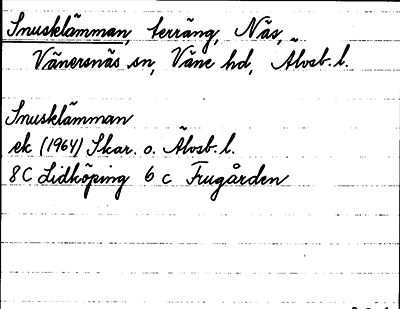 Snusklämman, terräng, Näs,
Vänersnäs sn, Väne hd, Älvsb. l.
Snusklämman
ek (1964) Skar. o. Älvsb. l.
8C Lidköping 6 c Frugården